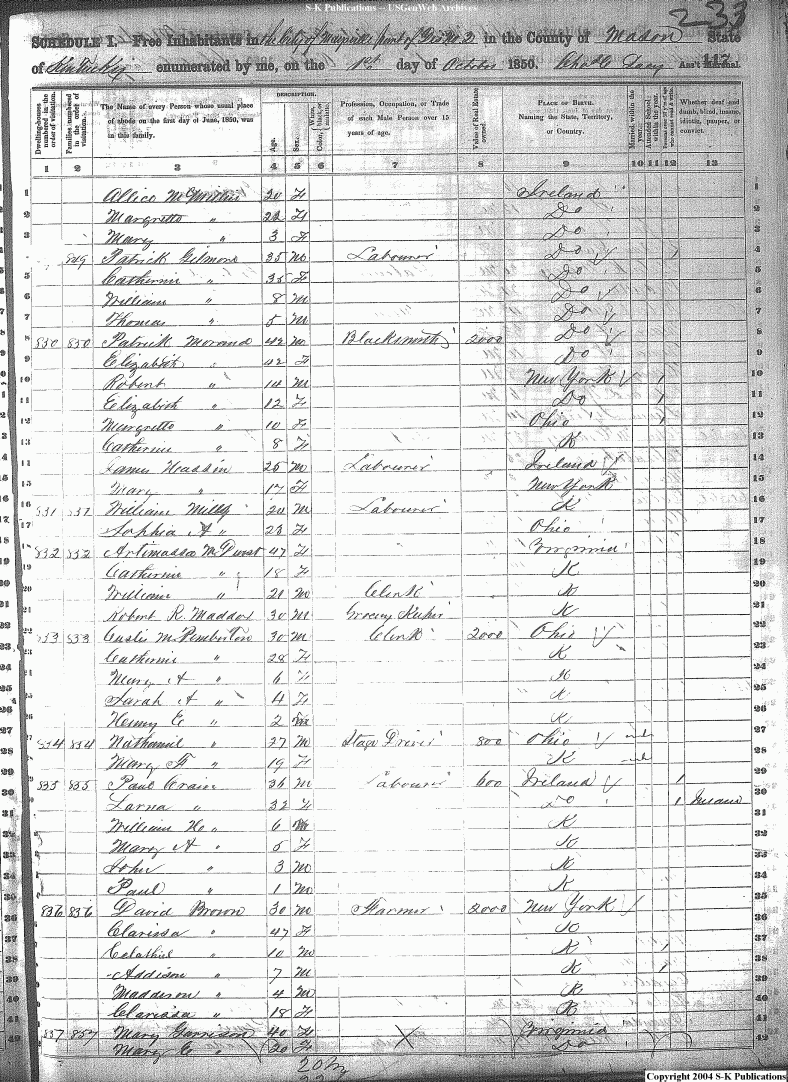 S-K Publications -- USGenWeb Archives
233
SCHEDULE I.—Free Inhabitants in the City of part of No. 2 in the County of Mason State
of Kentucky enumerated by me, on the 1st day of October 1850. Ass't Marshal. 117
Dwelling-houses numbered in the order of visitation.
Families numbered in the order of visitation.
The Name of every Person whose usual place of abode on the first day of June, 1850, was in this family.
DESCRIPTION.
Age.
Sex.
White, black, or mulatto. Color
Profession, Occupation, or Trade of each Male Person over 15 years of age.
Value of Real Estate owned.
PLACE OF BIRTH. Naming the State, Territory, or Country.
Married within the year.
Attended School within the year.
Whether deaf and dumb, blind, insane, idiotic, pauper, or convict.
1 2 3 4 5 6 7 8 9 10 11 12 13
1 Alice 20 F Ireland 1
2 Margrette " 22 F Do 2
3 Mary " 3 F Do 3
4 849 Patrick Gilmore 35 M Labourer Do 4
5 Catherine " 35 F Do 5
6 William " 8 M Do 6
7 Thomas " 5 M Do 7
8 850 850 Patrick Morand 42 M Blacksmith 2000 Do 8
9 Elizabeth " 42 F Do 9
10 Robert " 14 M New York 10
11 Elizabeth " 12 F Do 11
12 Margrette " 10 F Ohio 12
13 Catherine " 8 F K 13
14 James Hassin 25 M Labourer Ireland 14
15 Mary " 17 F New York 15
16 831 William Mills 20 M Labourer K 16
17 Sophia A " 23 F Ohio 17
18 832 832 Artimassa 47 F Virginia 18
19 Catherine " 18 F K 19
20 William " 21 M Clerk K 20
21 Robert R. Maddox 30 M Grocery Keeper K 21
22 833 833 M. Pemberton 30 M Clerk 2000 Ohio 22
23 Catherine " 28 F K 23
24 Mary A " 6 F K 24
25 Sarah A " 4 F K 25
26 Henry E " 2 M K 26
27 834 834 Nathaniel " 27 M Stage Driver 800 Ohio 27
28 Mary F " 19 F K 28
29 835 835 Paul Crain 36 M Labourer 600 Ireland 29
30 " 32 F Do Insane 30
31 William H " 6 M K 31
32 Mary A " 5 F K 32
33 John " 3 M K 33
34 Paul " 1 M K 34
35 836 836 David Brown 30 M Farmer 2000 New York 35
36 Clarissa " 47 F K 36
37 " 10 M K 37
38 Addison " 7 M K 38
39 Maddison " 4 M K 39
40 Clarissa " 18 F K 40
41 857 857 Mary Garrison 40 F X Virginia 41
42 Mary E " 20 F Do 42
20 M
Copyright 2004 S-K Publications